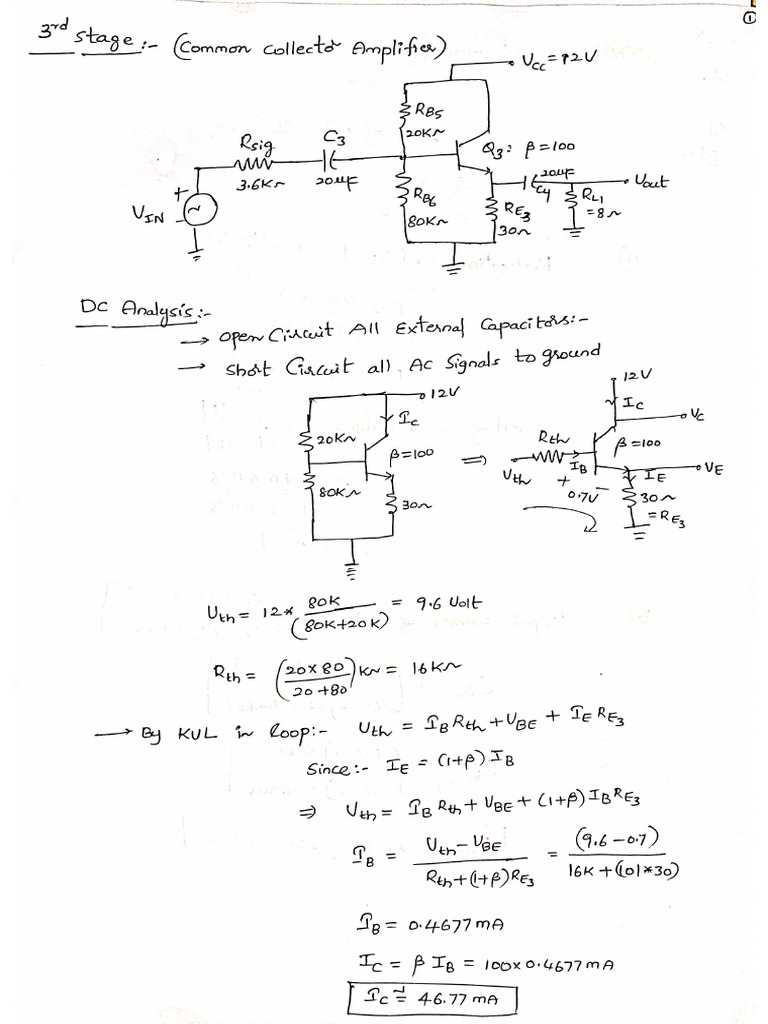 ①
3rd stage:- (Common Collector Amplifier)
VCC = 12V
RB5
20KΩ
Rsig
3.6KΩ
C3
20µF
Q3: β=100
RB6
80KΩ
20µF
C4
Vout
RE3
30Ω
RL1
=8Ω
VIN
+
-
~
DC Analysis:-
→ Open Circuit All External Capacitors:-
→ Short Circuit all AC Signals to ground
12V
IC
20KΩ
β=100
80KΩ
30Ω
⇒
12V
IC
VC
Rth
β=100
Vth
IB
IE
VE
+ -
0.7V
30Ω
= RE3
Vth = 12* 80K / (80K+20K) = 9.6 Volt
Rth = (20×80 / 20+80) KΩ = 16KΩ
→ By KVL in loop:- Vth = IB Rth + VBE + IE RE3
Since:- IE = (1+β) IB
⇒ Vth = IB Rth + VBE + (1+β) IB RE3
IB = Vth - VBE / Rth + (1+β) RE3 = (9.6-0.7) / 16K + (101*30)
IB = 0.4677mA
IC = β IB = 100×0.4677mA
IC ≅ 46.77 mA